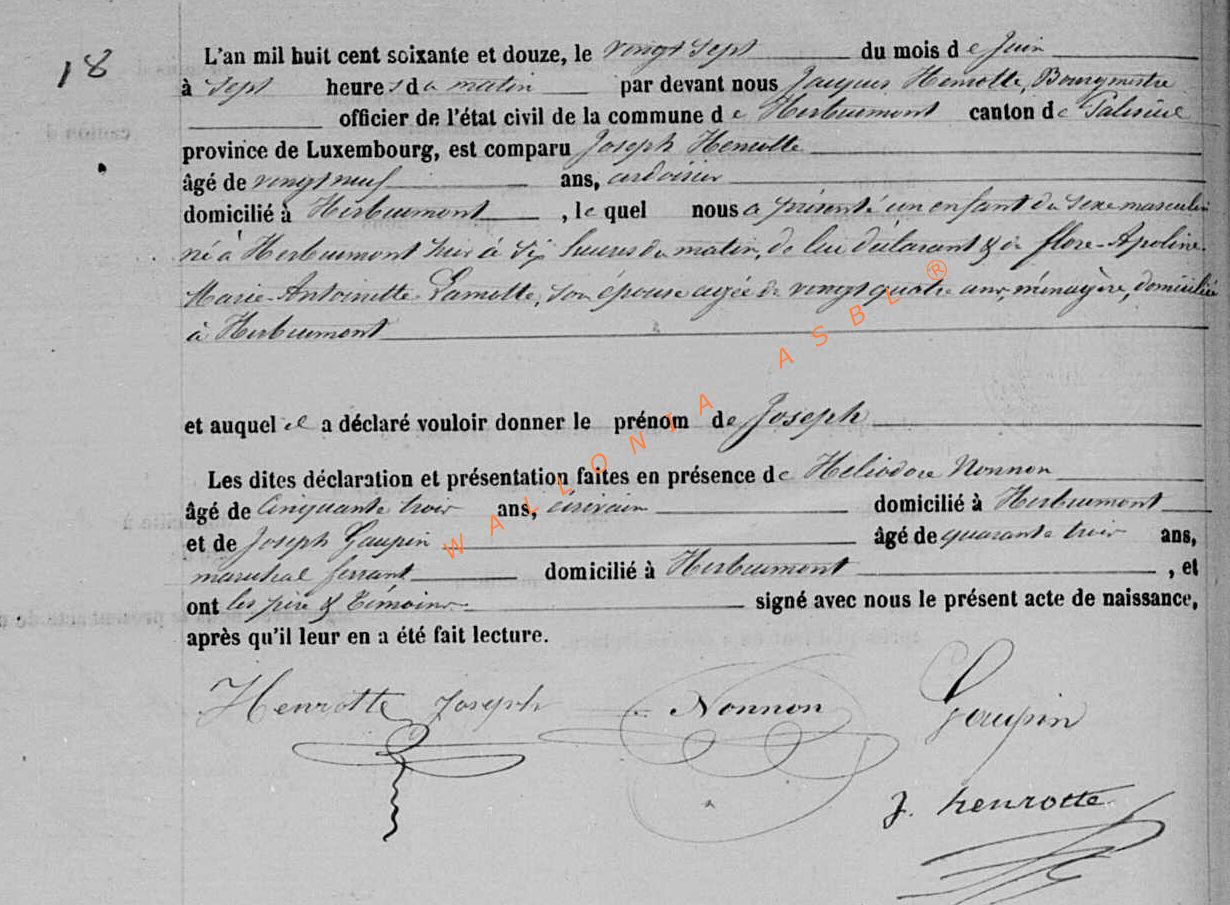 18
L'an mil huit cent soixante et douze, le vingt sept du mois de Juin
à sept heures du matin par devant nous Jacques Henrotte, Bourgmestre
officier de l'état civil de la commune de Herbeumont canton de Paliseul
province de Luxembourg, est comparu Joseph Henrotte
âgé de vingt neuf ans, ardoisier
domicilié à Herbeumont, le quel nous a présenté un enfant du sexe masculin
né à Herbeumont hier à six heures du matin, de lui déclarant & de flore-Apoline
Marie-Antoinette Lamotte, son épouse agée de vingt quatre ans, ménagère, domiciliée
à Herbeumont
et auquel il a déclaré vouloir donner le prénom de Joseph
Les dites déclaration et présentation faites en présence de Héliodore Nonnon
âgé de Cinquante trois ans, écrivain domicilié à Herbeumont
et de Joseph Gaupin âgé de quarante trois ans,
maréchal ferrant domicilié à Herbeumont, et
ont les père & témoins signé avec nous le présent acte de naissance,
après qu'il leur en a été fait lecture.
Henrotte Joseph Nonnon Gaupin
J. henrotte
WALLONIA ASBL ®